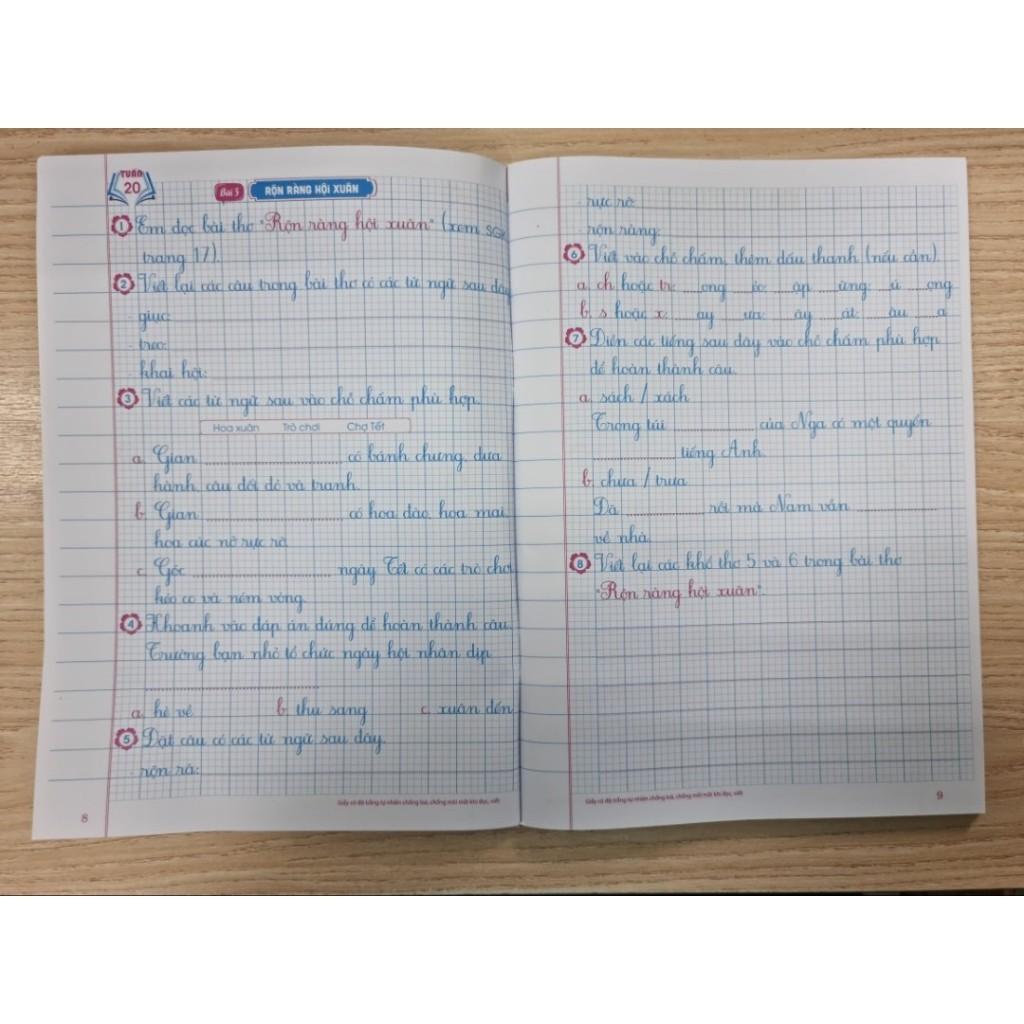 TUẦN
20
Bài 3 RỘN RÀNG HỘI XUÂN
1 Em đọc bài thơ "Rộn ràng hội xuân" (xem SGK
trang 17).
2 Viết lại các câu trong bài thơ có các từ ngữ sau đây
- giục:
- treo:
- khai hội:
3 Viết các từ ngữ sau vào chỗ chấm phù hợp.
Hoa xuân Trò chơi Chợ Tết
a. Gian .......... có bánh chưng, dưa
hành, câu đối đỏ và tranh.
b. Gian .......... có hoa đào, hoa mai,
hoa cúc nở rực rỡ.
c. Góc .......... ngày Tết có các trò chơi
kéo co và ném vòng.
4 Khoanh vào đáp án đúng để hoàn thành câu.
Trường bạn nhỏ tổ chức ngày hội nhân dịp
..........
a. hè về b. thu sang c. xuân đến
5 Đặt câu có các từ ngữ sau đây.
- rộn rã:
Giấy có độ trắng tự nhiên chống loá, chống mỏi mắt khi đọc, viết
8
- rực rỡ:
- rộn ràng:
6 Viết vào chỗ chấm, thêm dấu thanh (nếu cần).
a. ch hoặc tr: ....ong ....óc ....ap ....ừng ....ú ....ọng
b. s hoặc x: ....ay ....ưa ....ây ....át ....âu ....a
7 Điền các tiếng sau đây vào chỗ chấm phù hợp
để hoàn thành câu.
a. sách / xách
Trong túi .......... của Nga có một quyển
.......... tiếng Anh.
b. chưa / trưa
Đã .......... rồi mà Nam vẫn ..........
về nhà.
8 Viết lại các khổ thơ 5 và 6 trong bài thơ
"Rộn ràng hội xuân".
Giấy có độ trắng tự nhiên chống loá, chống mỏi mắt khi đọc, viết
9